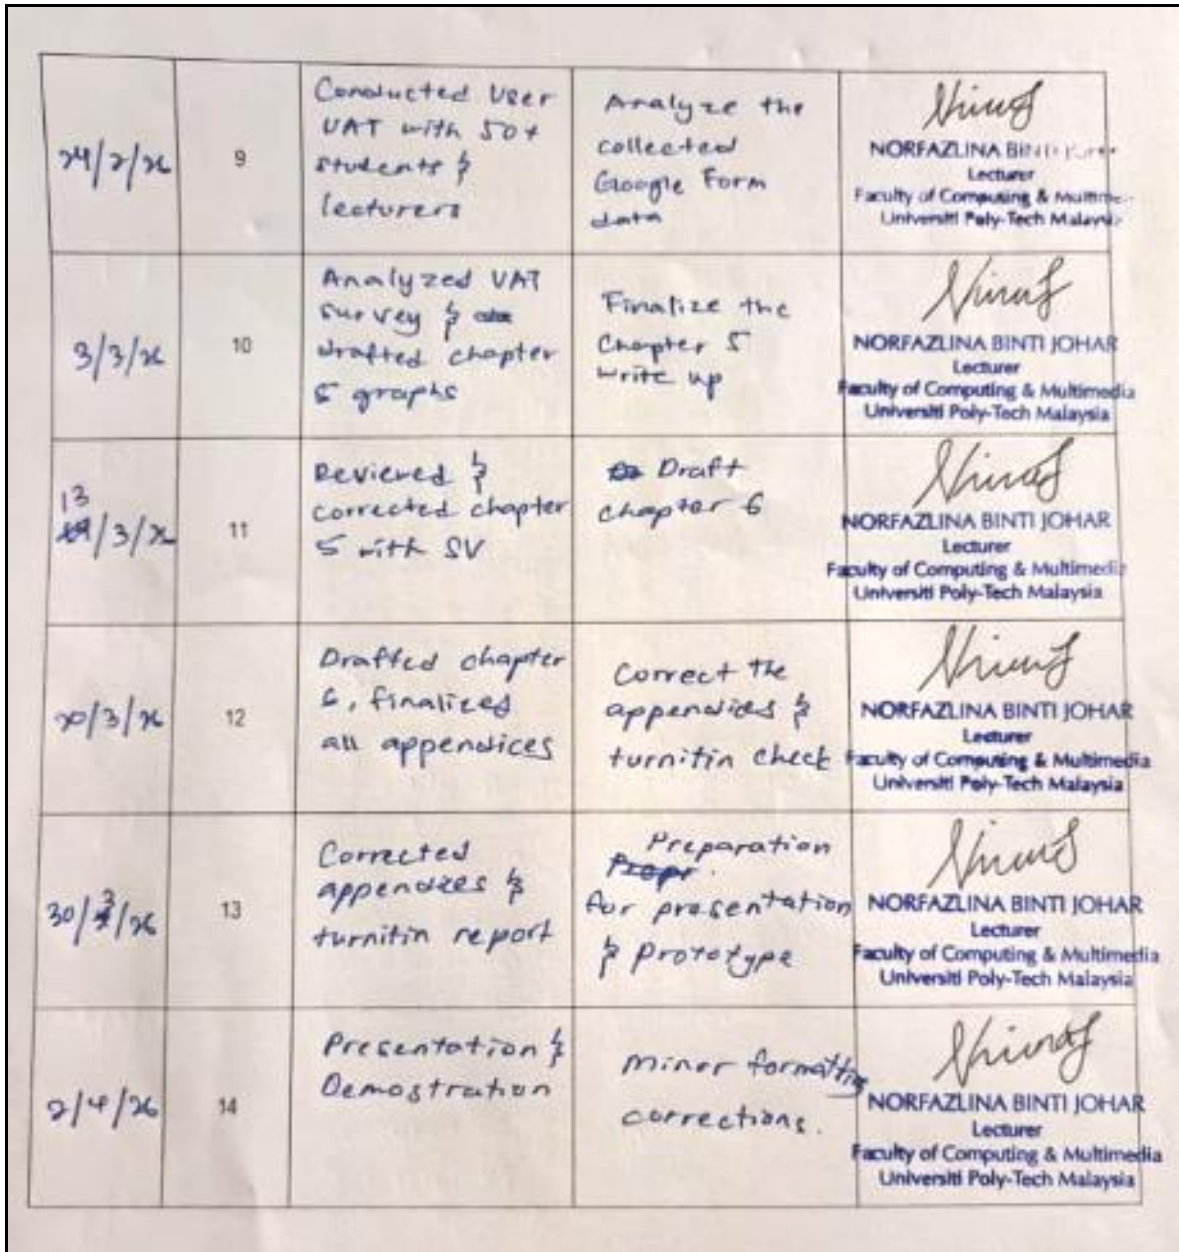 24/2/26
9
Conducted User
UAT with 50+
students &
lecturers
Analyze the
collected
Google Form
data
NORFAZLINA BINTI
Lecturer
Faculty of Computing &
Universiti Poly-Tech Malaysia
3/3/26
10
Analyzed UAT
survey &
drafted chapter
5 graphs
Finalize the
Chapter 5
write up
NORFAZLINA BINTI JOHAR
Lecturer
Faculty of Computing & Multimedia
Universiti Poly-Tech Malaysia
13/3/26
11
Reviered &
corrected chapter
5 with SV
Draft
chapter 6
NORFAZLINA BINTI JOHAR
Lecturer
Faculty of Computing & Multimedia
Universiti Poly-Tech Malaysia
20/3/26
12
Drafted chapter
6, finalized
all appendices
Correct the
appendices &
turnitin check
NORFAZLINA BINTI JOHAR
Lecturer
Faculty of Computing & Multimedia
Universiti Poly-Tech Malaysia
30/3/26
13
Corrected
appendices &
turnitin report
Preparation
for presentation
& Prototype
NORFAZLINA BINTI JOHAR
Lecturer
Faculty of Computing & Multimedia
Universiti Poly-Tech Malaysia
2/4/26
14
Presentation &
Demostration
Minor formatting
corrections.
NORFAZLINA BINTI JOHAR
Lecturer
Faculty of Computing & Multimedia
Universiti Poly-Tech Malaysia